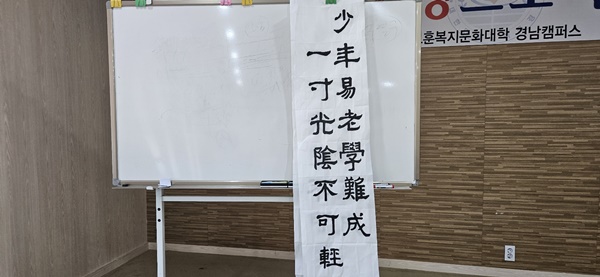 少年易老學難成
一寸光陰不可輕
훈복지문화대학 경남캠퍼스